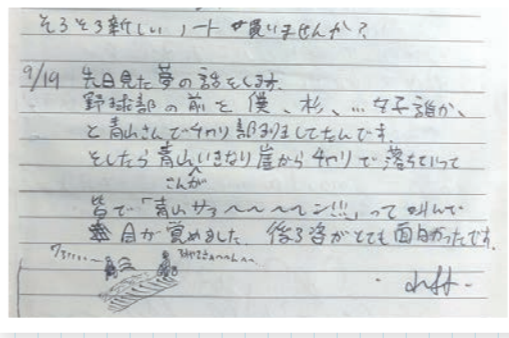 そろそろ新しいノート買いませんか？
9/19 先日見た夢の話をします。
野球部の前を僕、杉、…女子誰か、
と青山さんで4ケツしてたんです。
そしたら青山さんがいきなり崖から4ケツで落ちていって
皆で「青山サァ〜〜〜〜ン!!!」って叫んで
目が覚めました。後ろ姿がとても面白かったです。